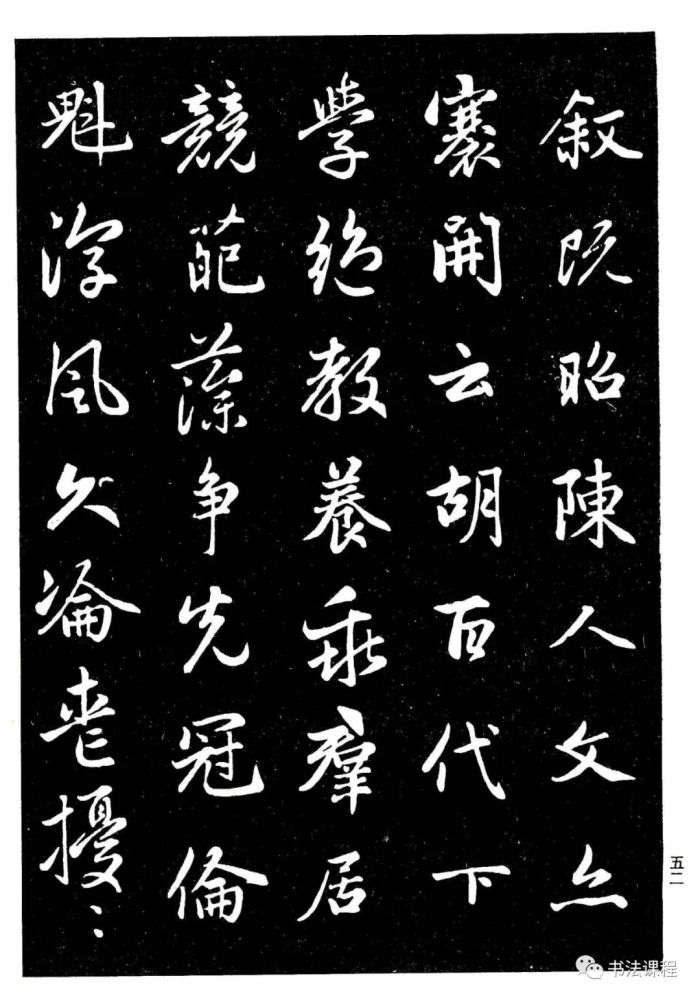 叙既昭陳人文亦
褰開云胡百代下
學絶教養乖羣居
競葩藻争先冠倫
魁淳風久淪喪擾〻
五二
书法课程